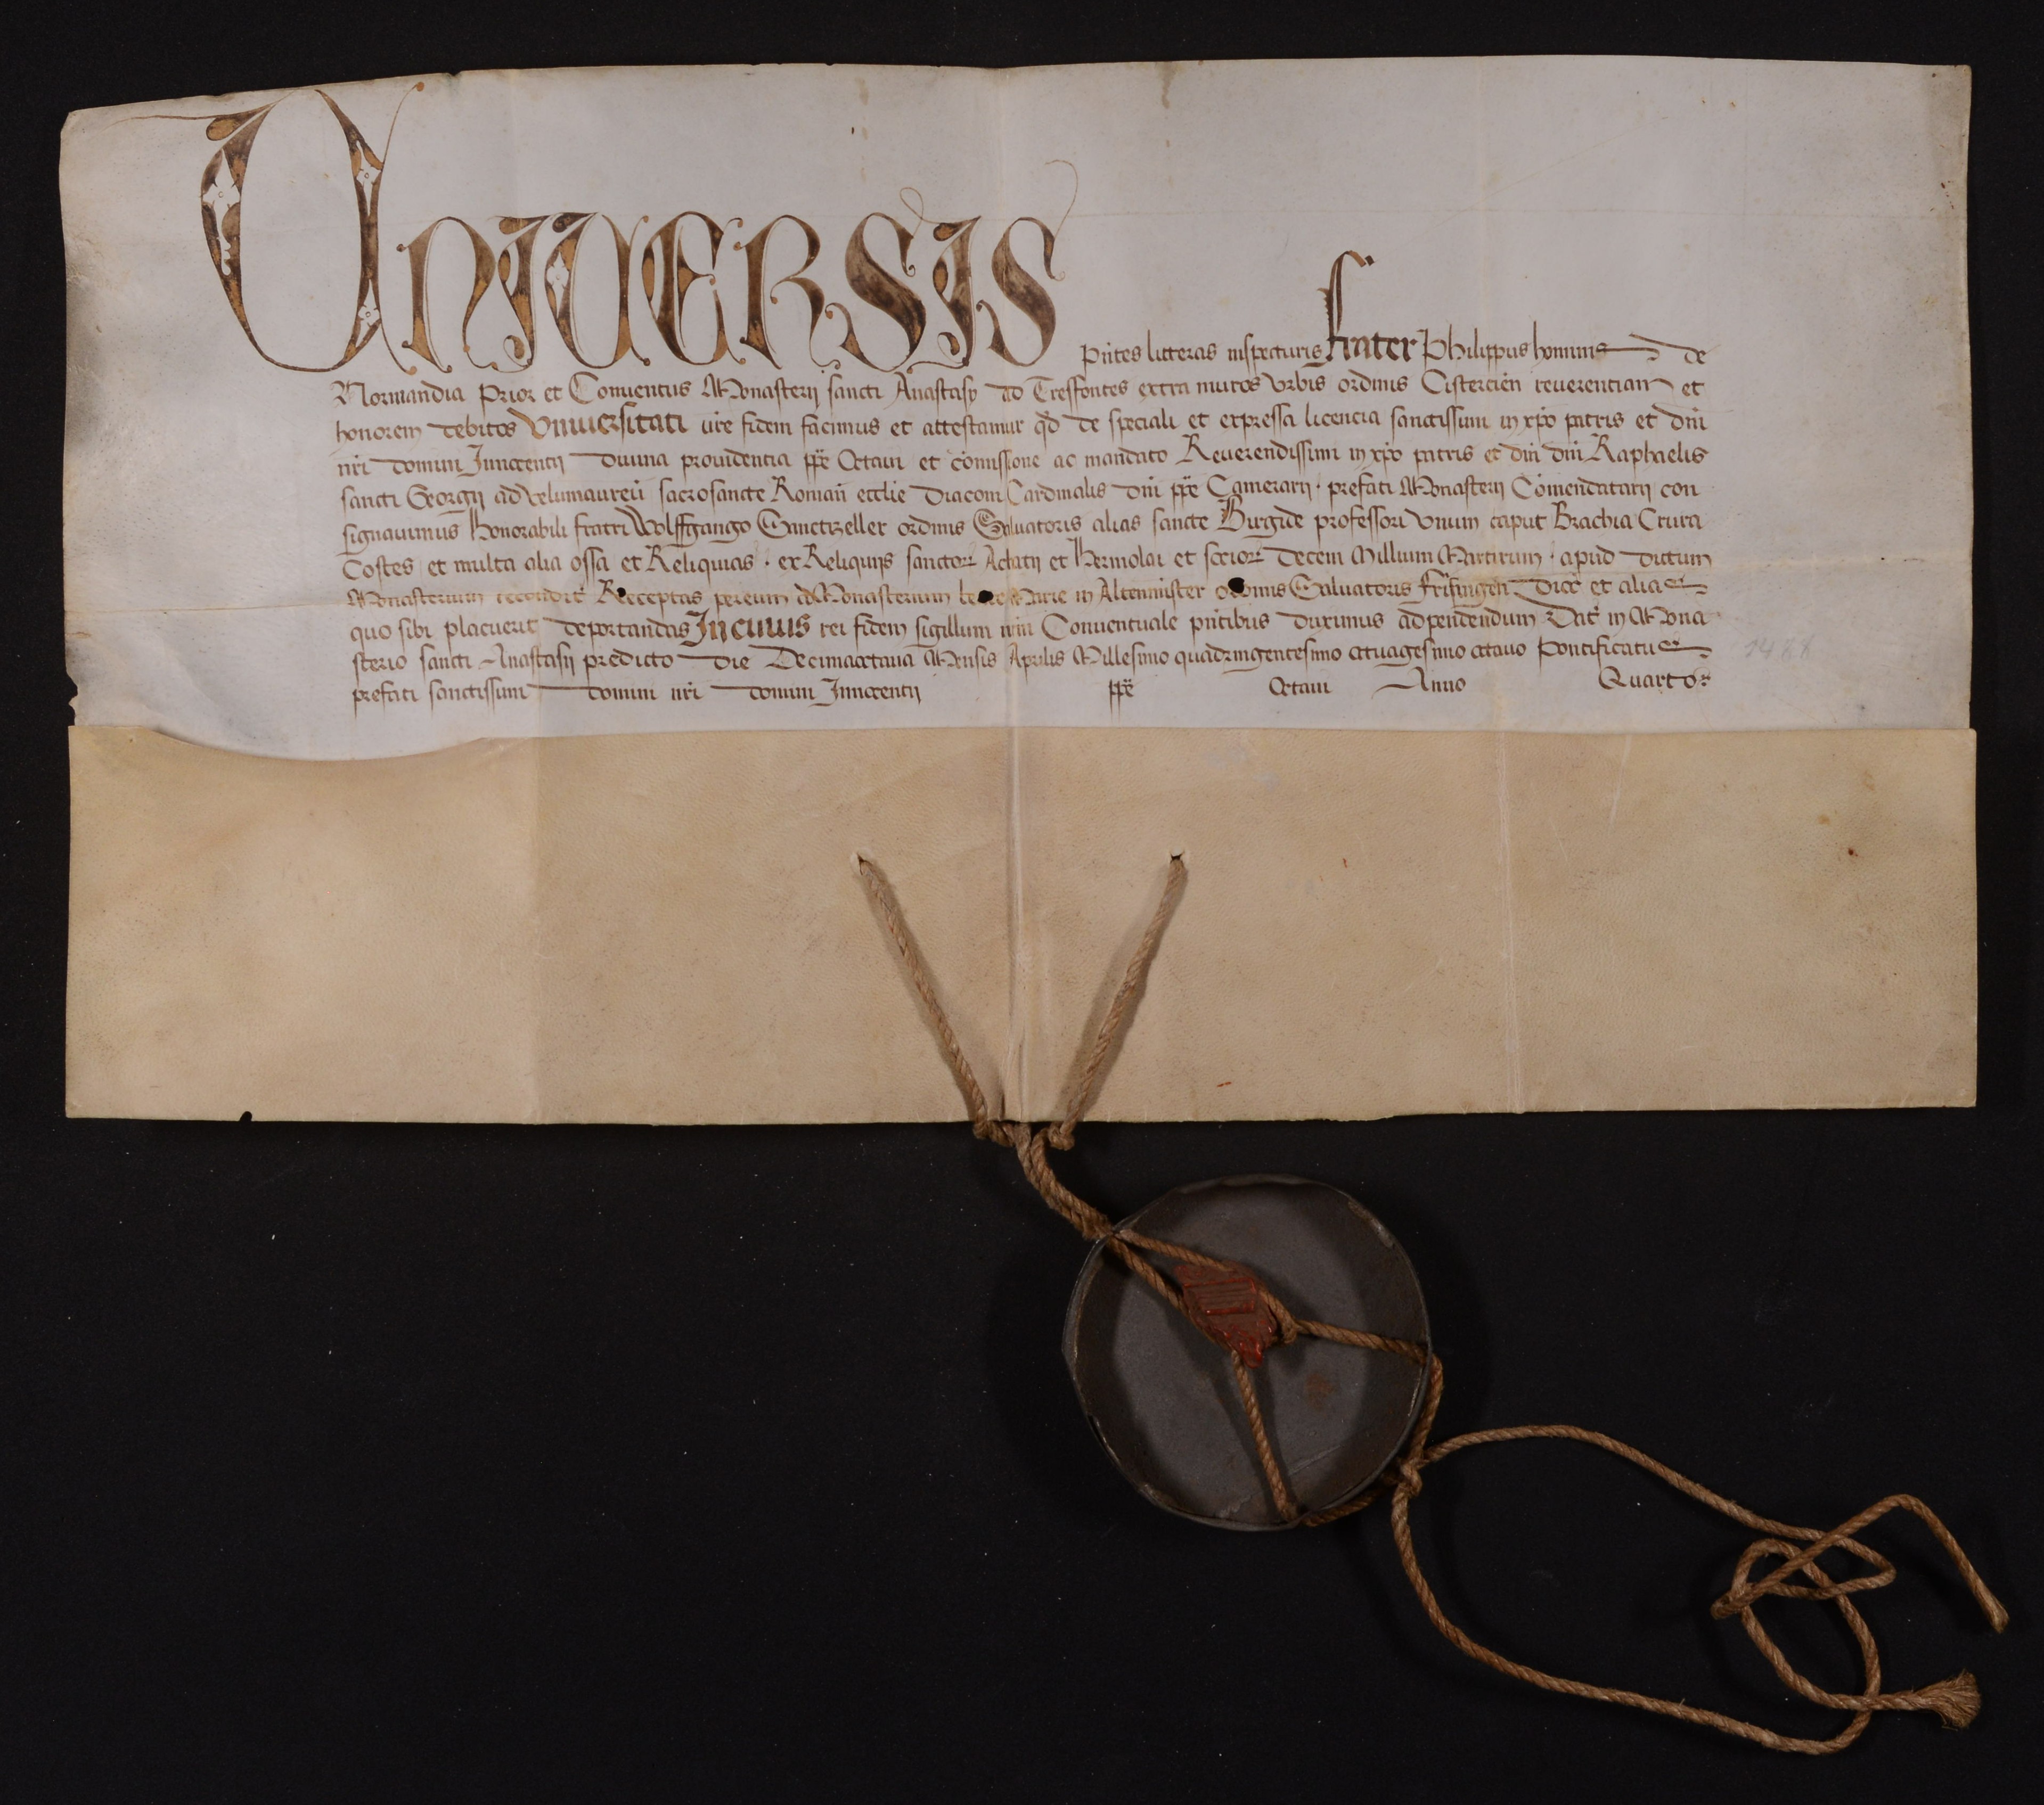 UNIVERSIS
pñtes litteras inspecturis frater Philippus hominis de
Normandia Prior et Conuentus Monasterij sancti Anastasij ad Tresfontes extra muros vrbis ordinis Cistercień reuerentiam et
honorem debitos Vniuersitati vr̃e fidem facimus et attestamur qđ de speciali et expressa licencia sanctissimi in xp̃o patris et dñi
nr̃i domini Innocentij diuina prouidentia pp̃e Octaui et com̃issione ac mandato Reuerendissimi in xp̃o patris et dñi dñi Raphaelis
sancti Georgij ad velumaureũ sacrosancte Romañ eccl̃ie Diaconi Cardinalis dñi pp̃e Camerarij · prefati Monasterij Com̃endatarij con
signauimus Honorabili fratri Wolffgango Sanctizeller ordinis Saluatoris alias sancte Birgide professori vnum caput Brachia Crura
Costes et multa alia ossa et Reliquias · ex Reliquijs sanctoꝝ Achatij et Hermolai et socioꝝ decem Millium Martirum · apud dictum
Monasterium Receptas per eum ad Monasterium Marie in Altenmünster Saluatoris Frisingeñ dioc̃ et alia
quo sibi placuerit deportandas In cuius rei fidem sigillum nr̃m Conuentuale pñtibus duximus adpendendum Dat̃ in Mona
sterio sancti Anastasij predicto die Decimaoctaua Mensis Aprilis Millesimo quadringentesimo octuagesimo octauo Pontificatus
prefati sanctissimi domini nr̃i domini Innocentij pp̃e Octaui Anno Quarto
1488